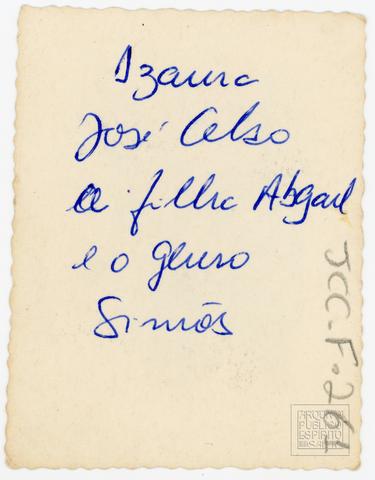 Izaura
José Celso
a filha Abgail
e o genro
Simões
JCC-F-261
ARQUIVO
PÚBLICO
ESPÍRITO
SANTO